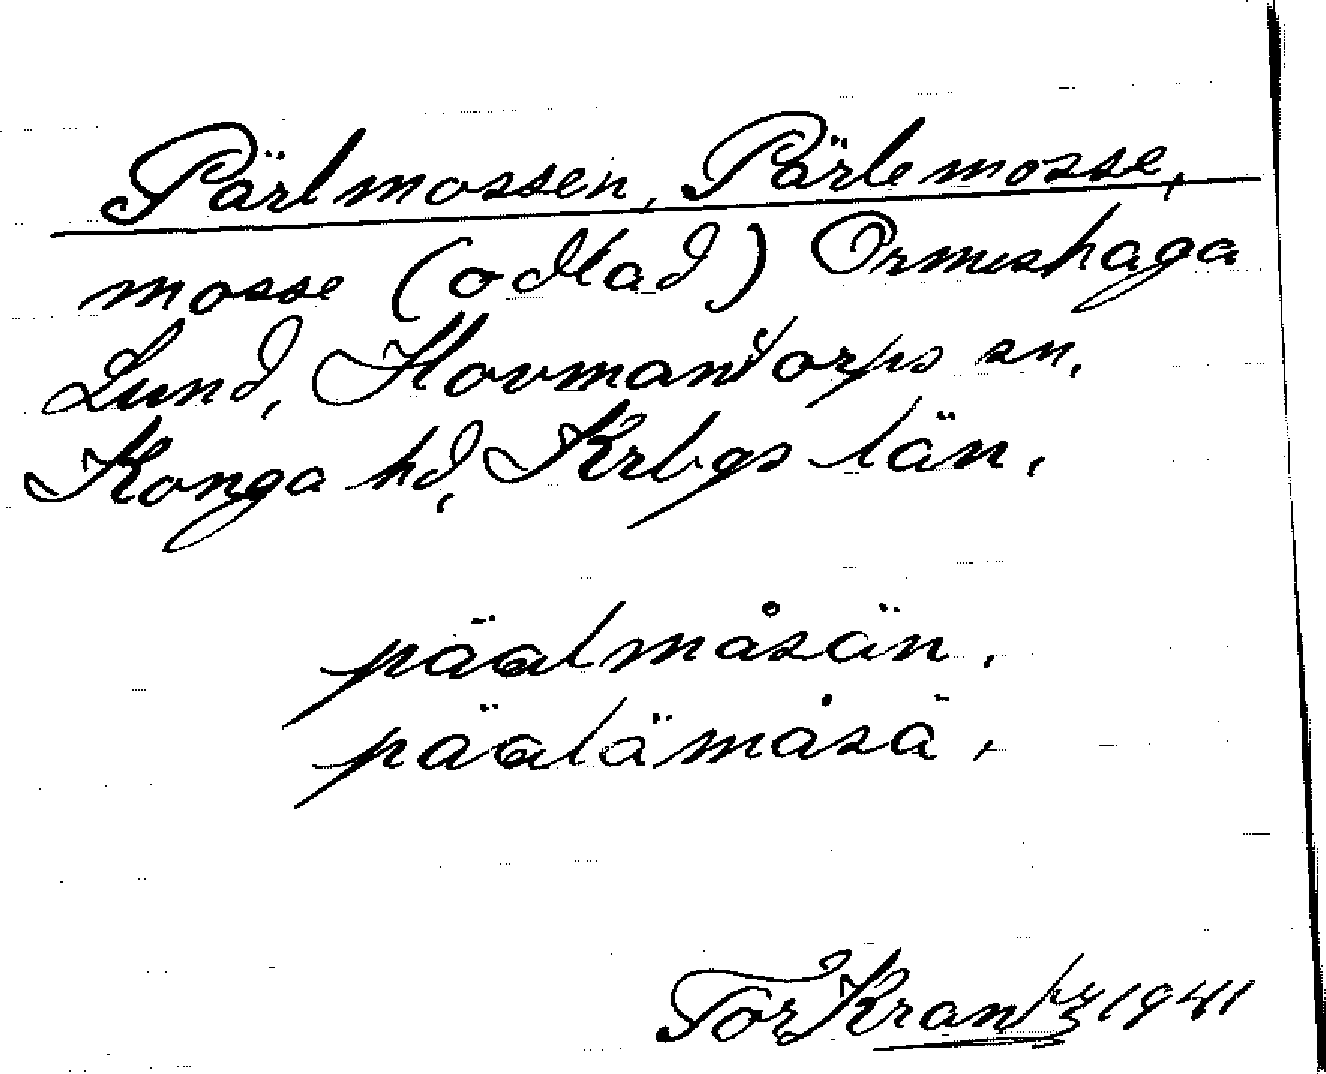 Pärlmossen, Pärlemosse,
mosse (odlad) Ormeshaga
Lund, Hovmantorps sn,
Konga hd, Krbgs län.
päalmåsän.
päalämåsä.
Tor Krantz 1941